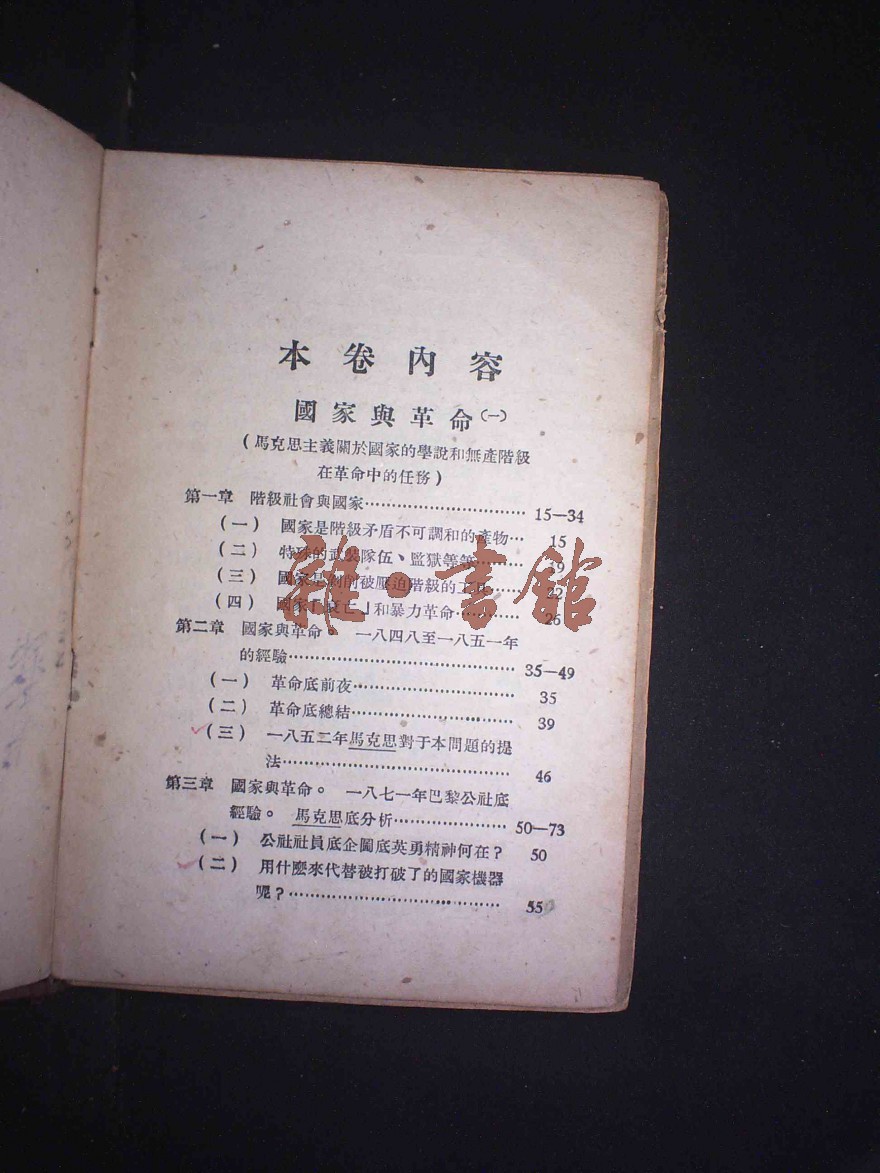 本卷內容
國家與革命(一)
(馬克思主義關於國家的學說和無產階級
在革命中的任務)
第一章 階級社會與國家…………………………… 15—34
(一) 國家是階級矛盾不可調和的產物… 15
(二) 特殊的武裝隊伍、監獄等等……… 19
(三) 國家是剝削被壓迫階級的工具…… 22
(四) 國家「衰亡」和暴力革命………… 26
第二章 國家與革命。 一八四八至一八五一年
的經驗……………………………………… 35—49
(一) 革命底前夜………………………… 35
(二) 革命底總結………………………… 39
(三) 一八五二年馬克思對于本問題的提
法…………………………………… 46
第三章 國家與革命。 一八七一年巴黎公社底
經驗。 馬克思底分析………………… 50—73
(一) 公社社員底企圖底英勇精神何在? 50
(二) 用什麼來代替被打破了的國家機器
呢?………………………………… 55
雜·書館